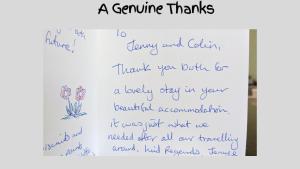 A Genuine Thanks
future!
To
Jenny and Colin,
Thank you both for
a lovely stay in your
beautiful accommodation.
it was just what we
needed after all our travelling
around. kind Regards